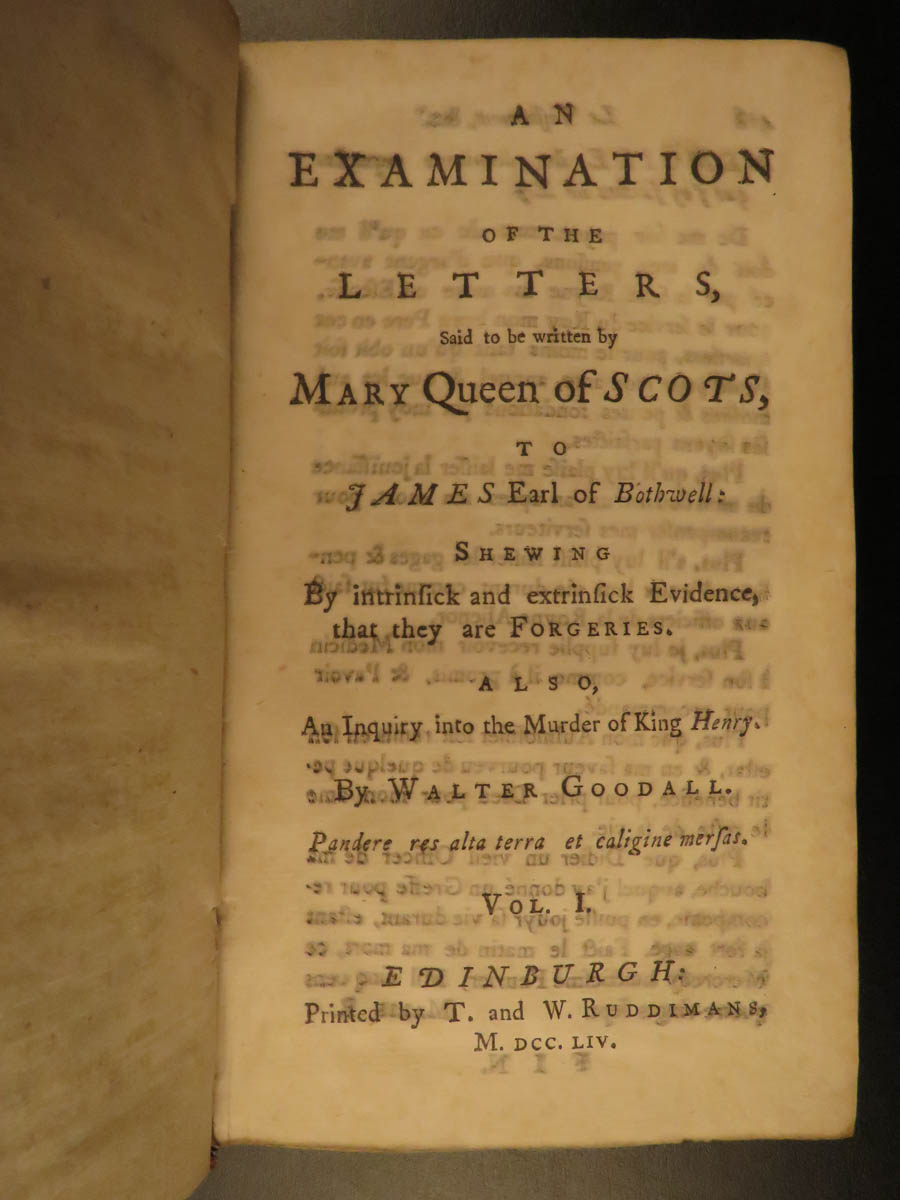 AN
EXAMINATION
OF THE
LETTERS,
Said to be written by
MARY Queen of SCOTS,
TO
JAMES Earl of Bothwell:
SHEWING
By intrinſick and extrinſick Evidence,
that they are FORGERIES.
ALSO,
An Inquiry into the Murder of King Henry.
By WALTER GOODALL.
Pandere res alta terra et caligine merſas.
VOL. I.
EDINBURGH:
Printed by T. and W. RUDDIMANS,
M. DCC. LIV.